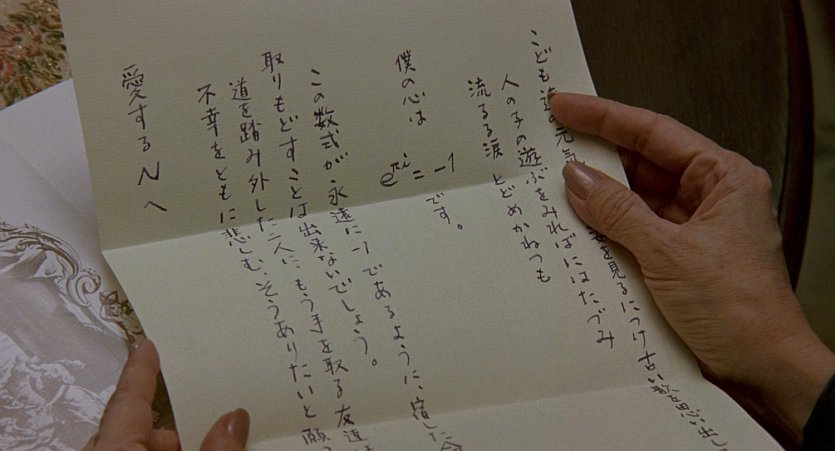 こども達の元気 姿を見るにつけ古い歌思い出し
人の子の遊ぶをみればにはたづみ
流るる涙 とどめかねつも
僕の心は e^πi = -1 です。
この数式が永遠に-1であるように、宿した命
取りもどすことは出来ないでしょう。
道を踏み外した二人に、もう手を取る友達
不幸をともに悲しむ、そうありたいと願
愛するNへ